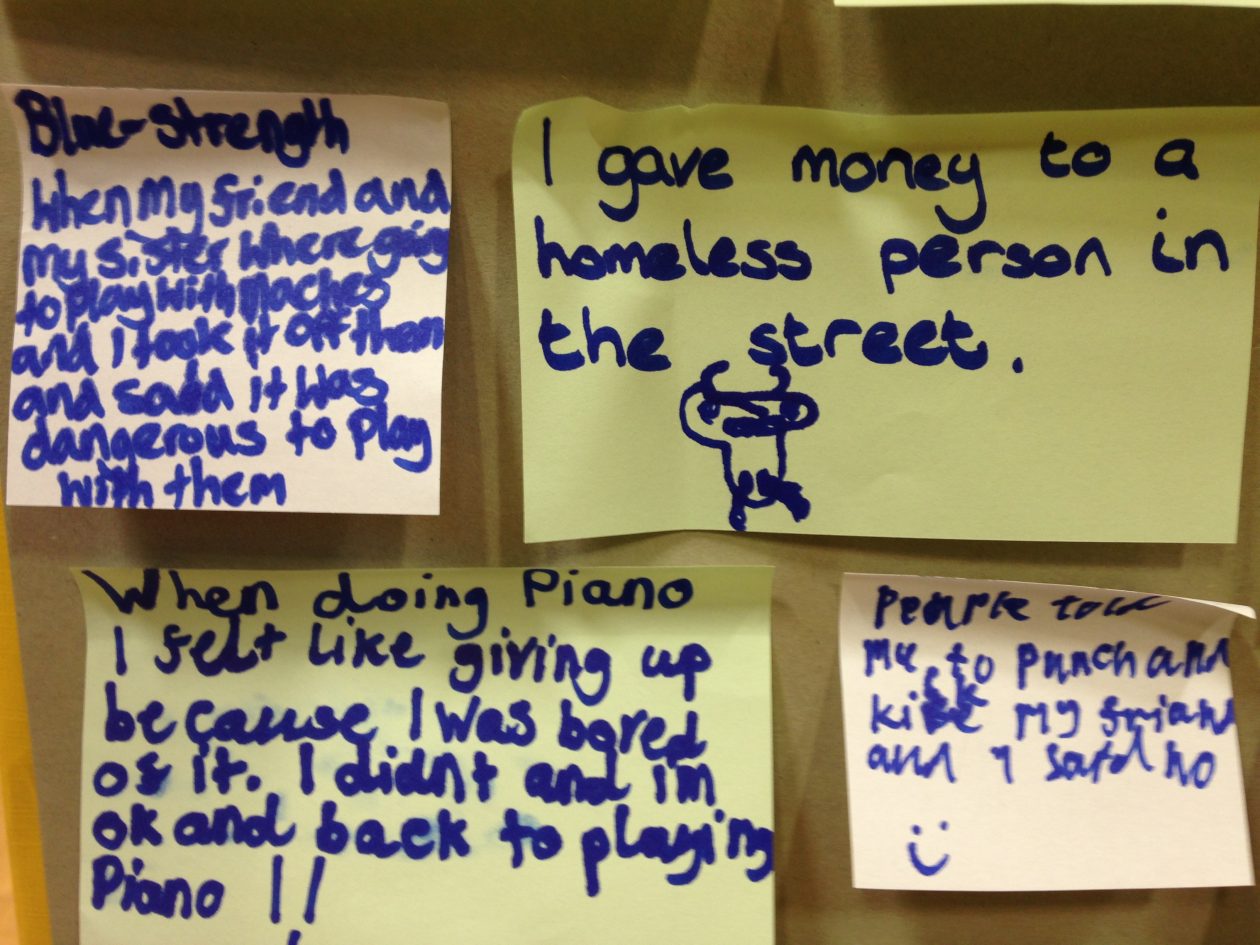 Blue-strength
When my friend and
my sister where going
to play with maches
and i took it off them
and saіd it was
dangerous to play
with them
I gave money to a
homeless person in
the street.
When doing Piano
I felt like giving up
because I was bored
of it. I didnt and im
ok and back to playing
Piano !!
People told
me to punch and
kick my friand
and I said no